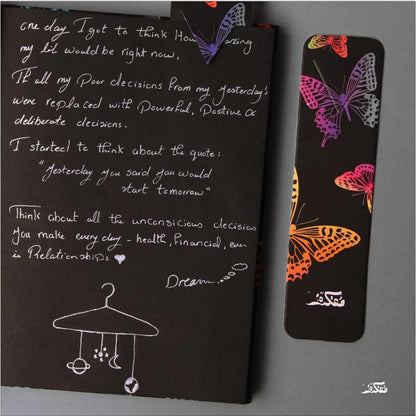 one day I got to think How amazing
my life would be right now,
If all my Poor decisions from my yesterday's
were replaced with Powerful, Positive &
deliberate decisions.
I started to think about the quote:
"Yesterday you said you would
start tomorrow"
Think about all the unconscious decisions
you make every day - health, Financial, even
in Relationships
Dream...